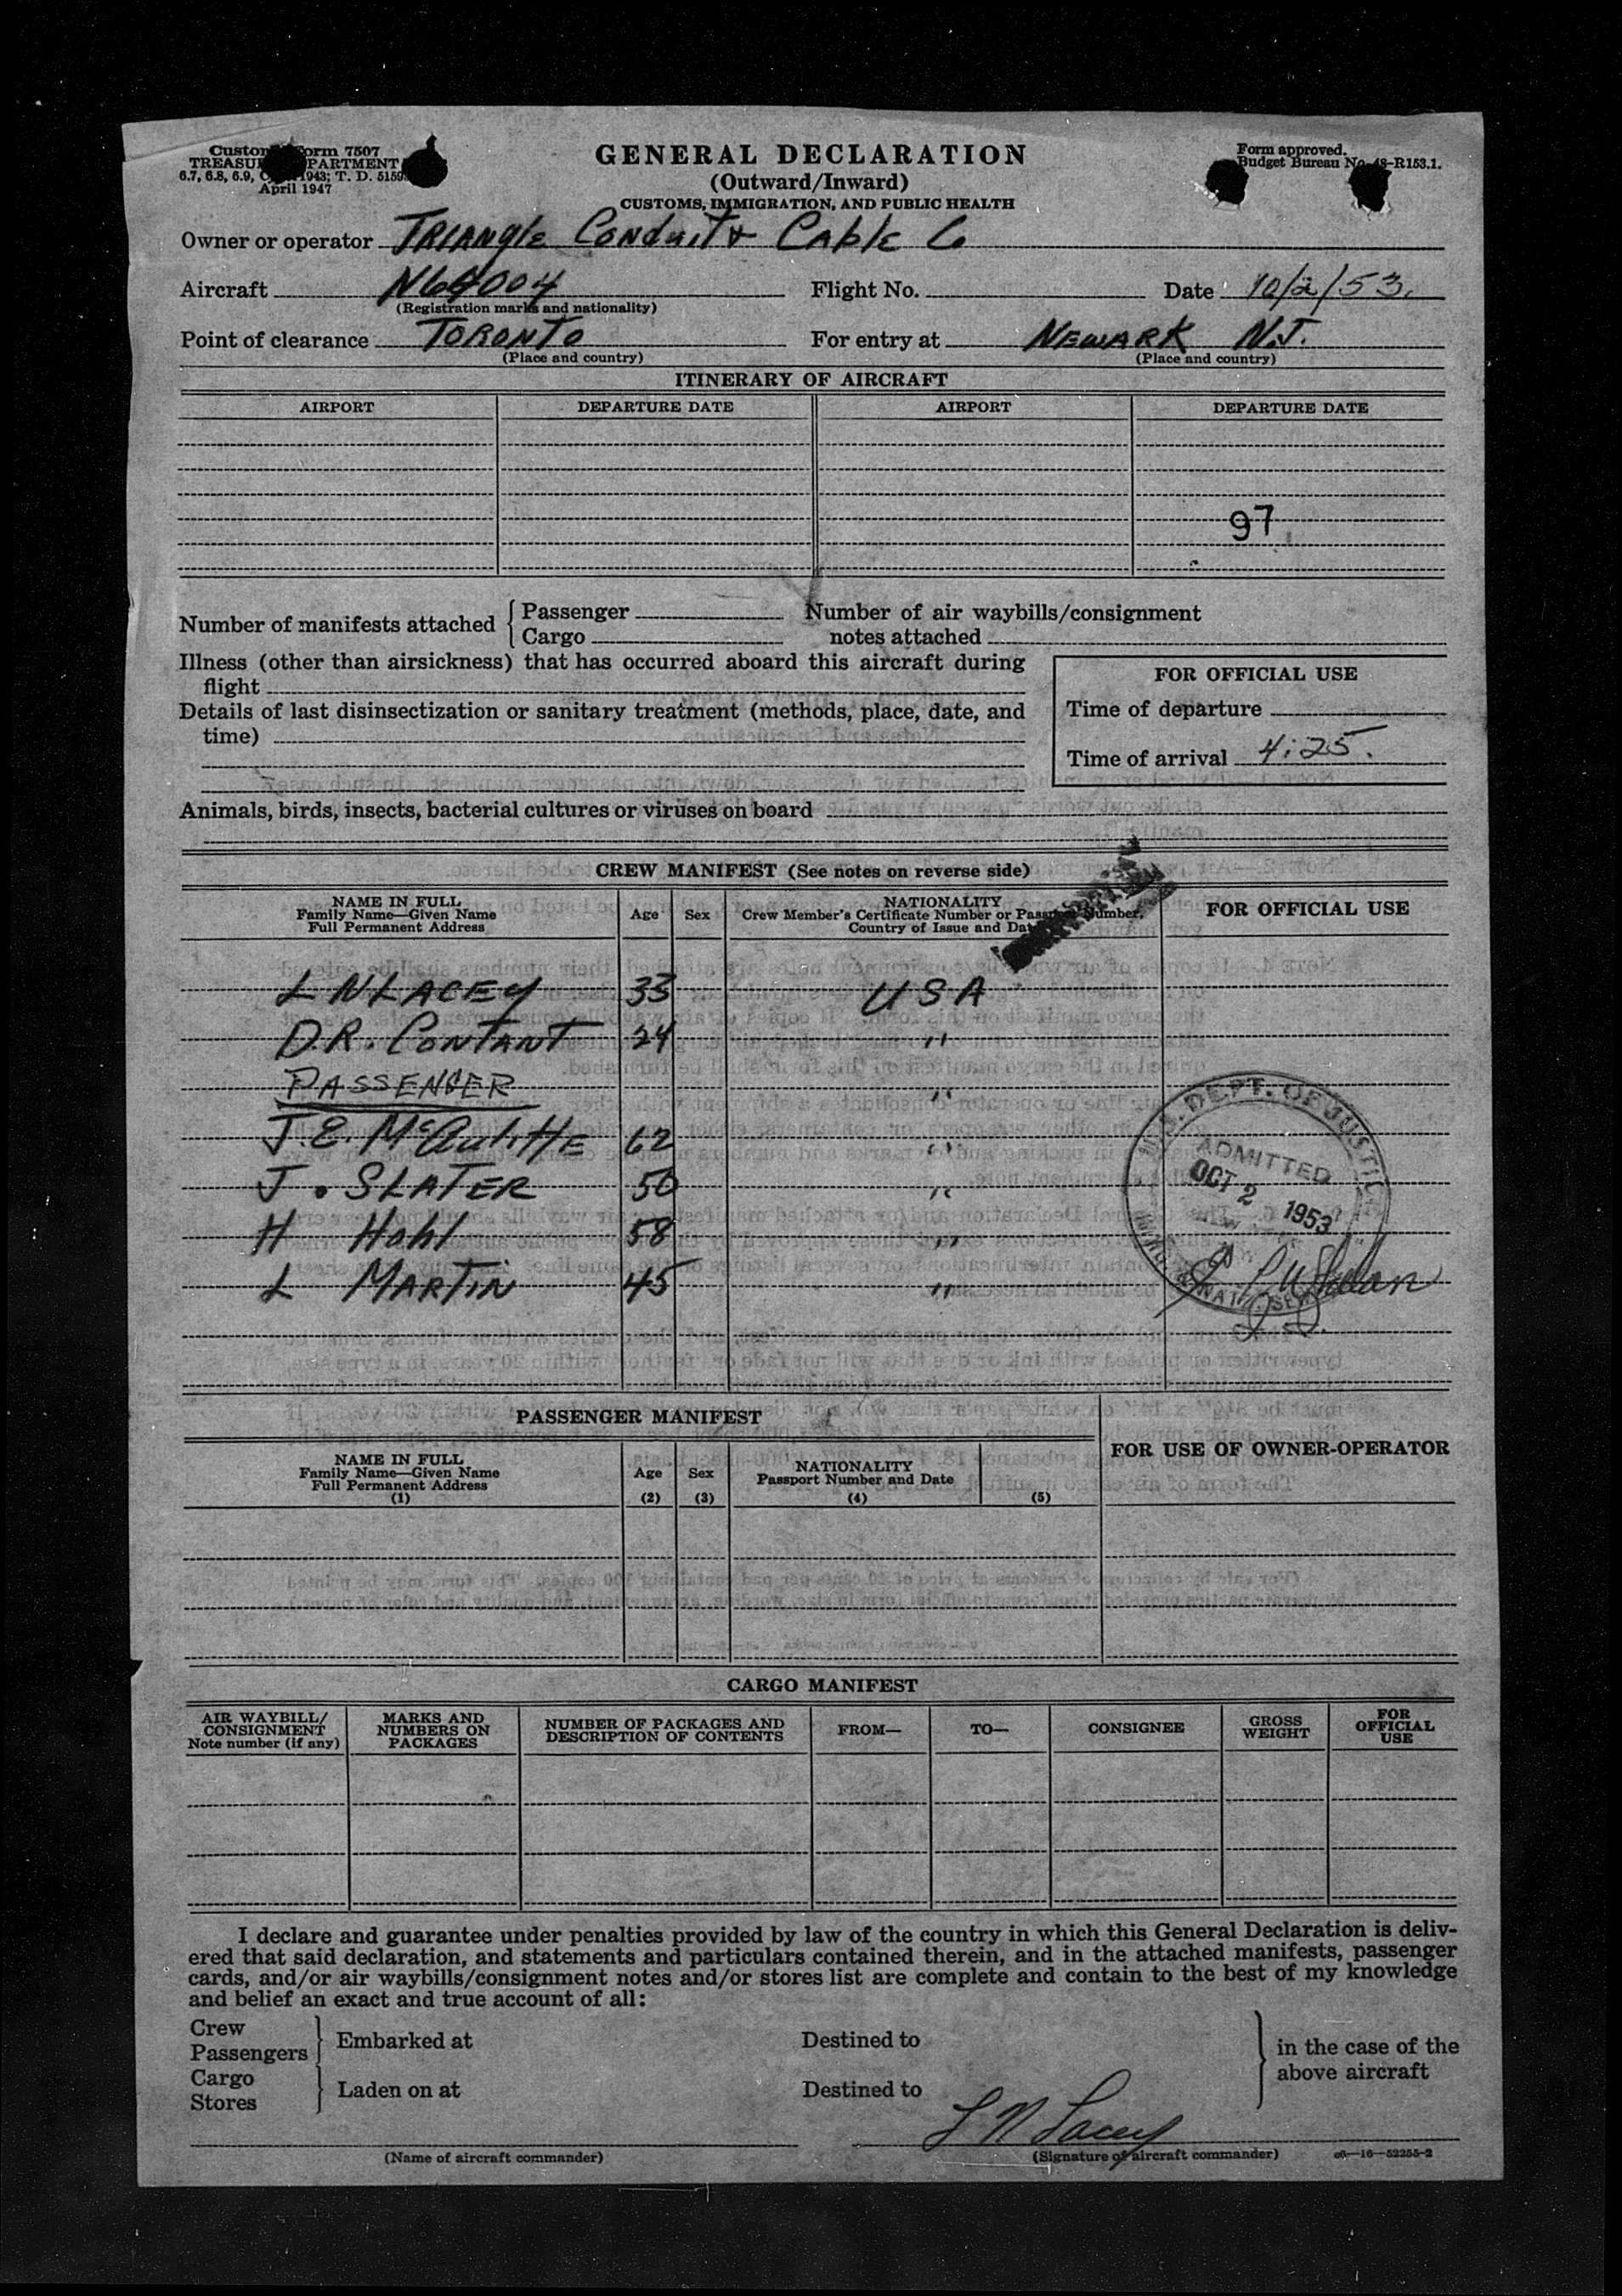 Customs Form 7507
TREASURY DEPARTMENT
6.7, 6.8, 6.9, 1943; T. D. 5159
April 1947
GENERAL DECLARATION
(Outward/Inward)
CUSTOMS, IMMIGRATION, AND PUBLIC HEALTH
Form approved.
Budget Bureau No. 48-R153.1.
Owner or operator TRIANGLE Conduit & Cable Co
Aircraft N64004 Flight No. Date 10/2/53.
(Registration marks and nationality)
Point of clearance TORONTO For entry at NEWARK N.J.
(Place and country) (Place and country)
ITINERARY OF AIRCRAFT
AIRPORT DEPARTURE DATE AIRPORT DEPARTURE DATE
97
Number of manifests attached { Passenger
Cargo
Number of air waybills/consignment
notes attached
Illness (other than airsickness) that has occurred aboard this aircraft during
flight
Details of last disinsectization or sanitary treatment (methods, place, date, and
time)
FOR OFFICIAL USE
Time of departure
Time of arrival 4:25.
Animals, birds, insects, bacterial cultures or viruses on board
CREW MANIFEST (See notes on reverse side)
NAME IN FULL
Family Name—Given Name
Full Permanent Address
Age Sex
NATIONALITY
Crew Member's Certificate Number or Passport Number,
Country of Issue and Date
FOR OFFICIAL USE
L N LACEY 33 USA
D.R. CONTANT 24 "
PASSENGER "
J.E. McAuliffe 62 "
J. SLATER 50 "
H Hohl 58 "
L MARTIN 45 "
U.S. DEPT. OF JUSTICE
ADMITTED
OCT 2 1953
PASSENGER MANIFEST
NAME IN FULL
Family Name—Given Name
Full Permanent Address
(1)
Age
(2)
Sex
(3)
NATIONALITY
Passport Number and Date
(4) (5)
FOR USE OF OWNER-OPERATOR
CARGO MANIFEST
AIR WAYBILL/
CONSIGNMENT
Note number (if any)
MARKS AND
NUMBERS ON
PACKAGES
NUMBER OF PACKAGES AND
DESCRIPTION OF CONTENTS
FROM— TO— CONSIGNEE
GROSS
WEIGHT
FOR
OFFICIAL
USE
I declare and guarantee under penalties provided by law of the country in which this General Declaration is deliv-
ered that said declaration, and statements and particulars contained therein, and in the attached manifests, passenger
cards, and/or air waybills/consignment notes and/or stores list are complete and contain to the best of my knowledge
and belief an exact and true account of all:
Crew
Passengers } Embarked at Destined to
Cargo
Stores } Laden on at Destined to
} in the case of the
above aircraft
L N Lacey
(Name of aircraft commander) (Signature of aircraft commander) c6—16—52255-2